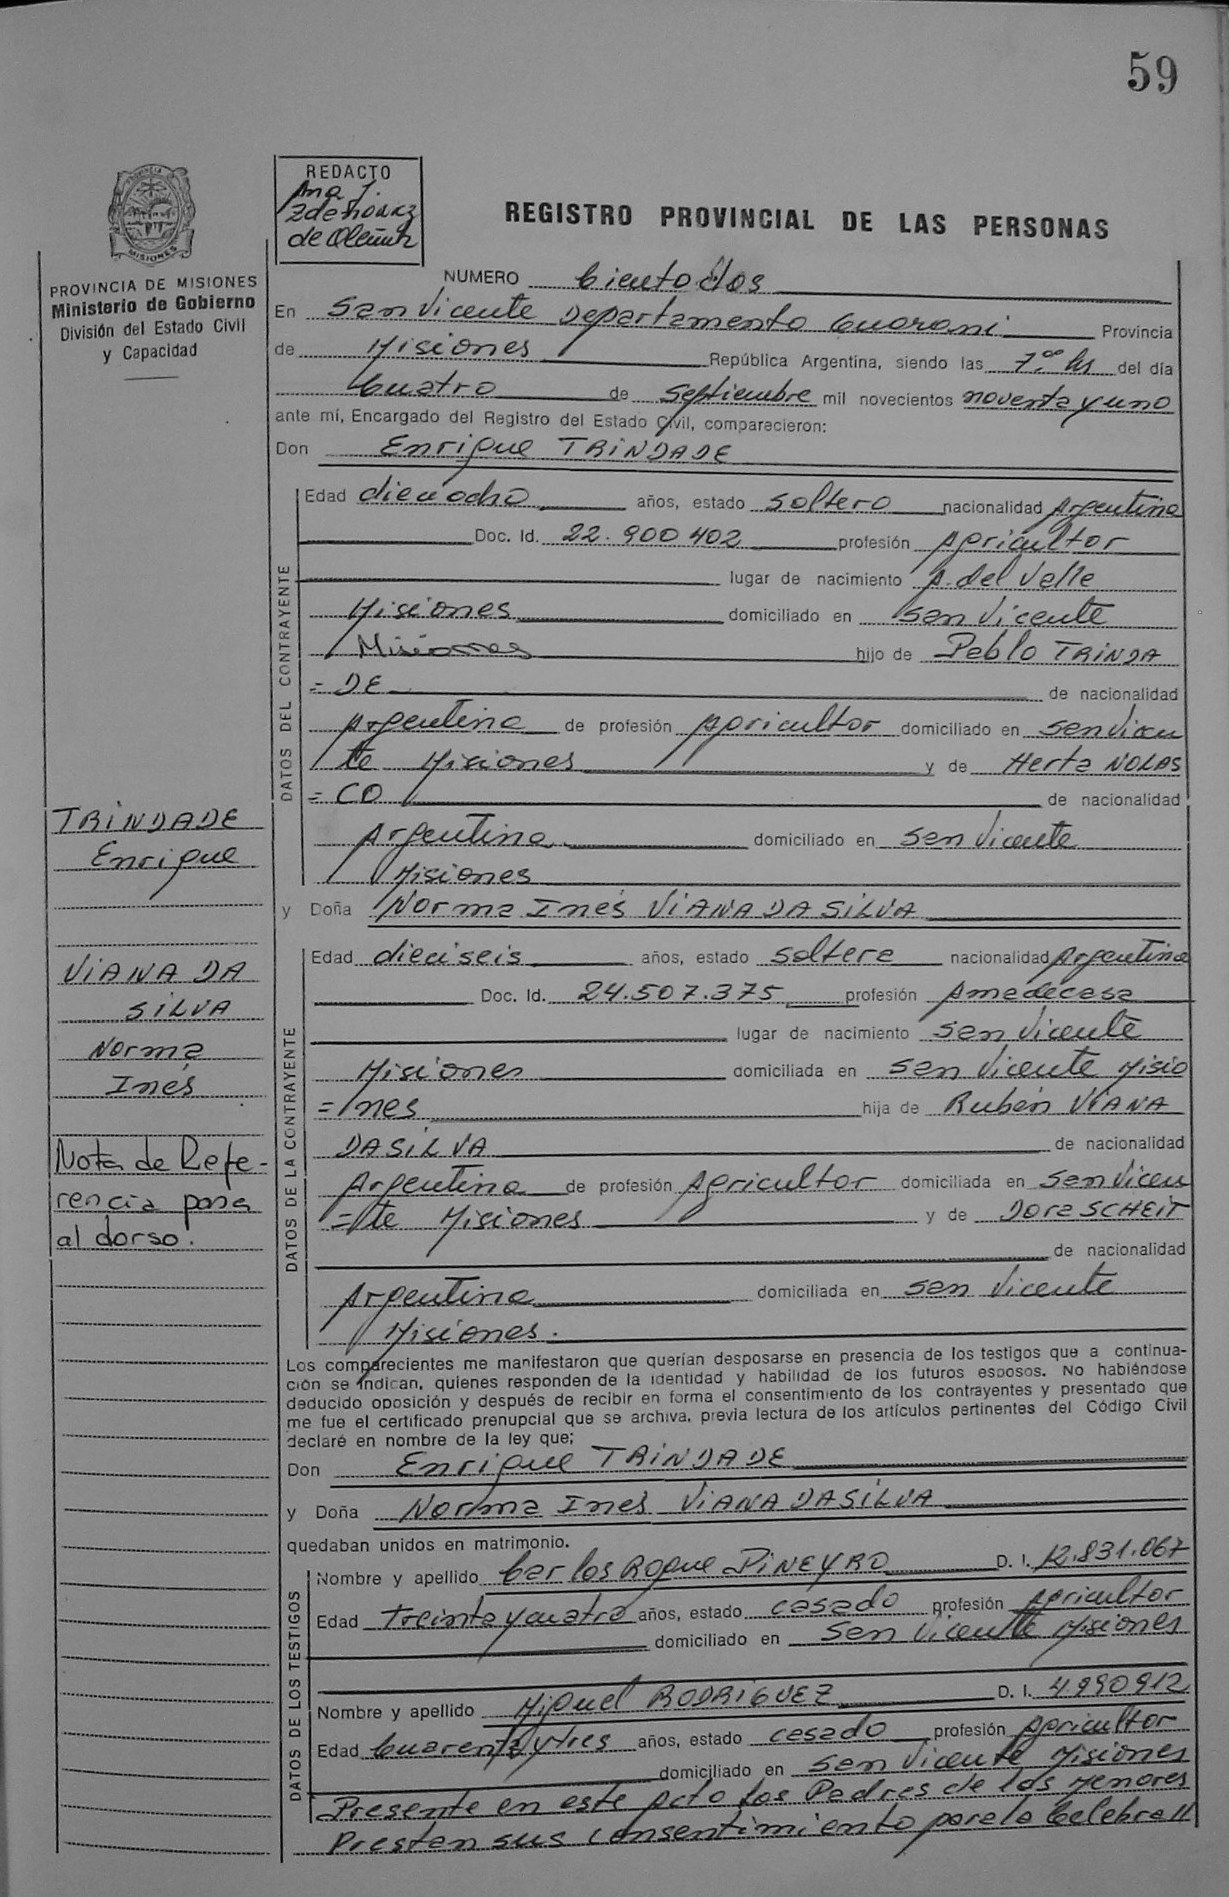 59
REDACTO
Ana J.
Zdeñovaz
de Oleñuk
REGISTRO PROVINCIAL DE LAS PERSONAS
MISIONES
PROVINCIA DE MISIONES
Ministerio de Gobierno
División del Estado Civil
y Capacidad
NUMERO Ciento dos
En San Vicente Departamento Guaraní Provincia
de Misiones República Argentina, siendo las 7.00 hs del día
Cuatro de Septiembre mil novecientos noventa y uno
ante mí, Encargado del Registro del Estado Civil, comparecieron:
Don Enrique TRINDADE
DATOS DEL CONTRAYENTE
Edad dieciocho años, estado soltero nacionalidad Argentina
Doc. Id. 22.900.402 profesión Agricultor
lugar de nacimiento A. del Valle
Misiones domiciliado en San Vicente
Misiones hijo de Pablo TRINDA
= DE de nacionalidad
Argentina de profesión Agricultor domiciliado en San Vicen
te Misiones y de Herta NOLAS
= CO de nacionalidad
Argentina domiciliado en San Vicente
Misiones
y Doña Norma Inés VIANA DA SILVA
DATOS DE LA CONTRAYENTE
Edad dieciseis años, estado soltera nacionalidad Argentina
Doc. Id. 24.507.375 profesión Amadecasa
lugar de nacimiento San Vicente
Misiones domiciliada en San Vicente Misio
= nes hija de Rubén VIANA
DA SILVA de nacionalidad
Argentina de profesión Agricultor domiciliada en San Vicen
= te Misiones y de Dora SCHEIT
de nacionalidad
Argentina domiciliada en San Vicente
Misiones.
TRINDADE
Enrique
VIANA DA
SILVA
Norma
Inés
Nota de Refe-
rencia pasa
al dorso.
Los comparecientes me manifestaron que querían desposarse en presencia de los testigos que a continua-
ción se indican, quienes responden de la identidad y habilidad de los futuros esposos. No habiéndose
deducido oposición y después de recibir en forma el consentimiento de los contrayentes y presentado que
me fue el certificado prenupcial que se archiva, previa lectura de los artículos pertinentes del Código Civil
declaré en nombre de la ley que;
Don Enrique TRINDADE
y Doña Norma Inés VIANA DA SILVA
quedaban unidos en matrimonio.
DATOS DE LOS TESTIGOS
Nombre y apellido Carlos Roque PINEYRO D. I. 12.831.067
Edad Treinta y cuatro años, estado casado profesión Agricultor
domiciliado en San Vicente Misiones
Nombre y apellido Miguel RODRIGUEZ D. I. 4990912
Edad Cuarenta y tres años, estado casado profesión Agricultor
domiciliado en San Vicente Misiones
Presente en este Acto los Padres de los menores
Prestan sus consentimiento para la Celebra //